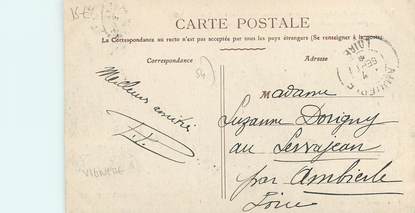 15€
CARTE POSTALE
La Correspondance au recto n'est pas acceptée par tous les pays étrangers (Se renseigner à la poste)
Correspondance
Adresse
Meilleurs amitiés
Madame
Suzanne Dorigny
au Lervajean
par Ambierle
Loire
LOIRE
VIGNERE